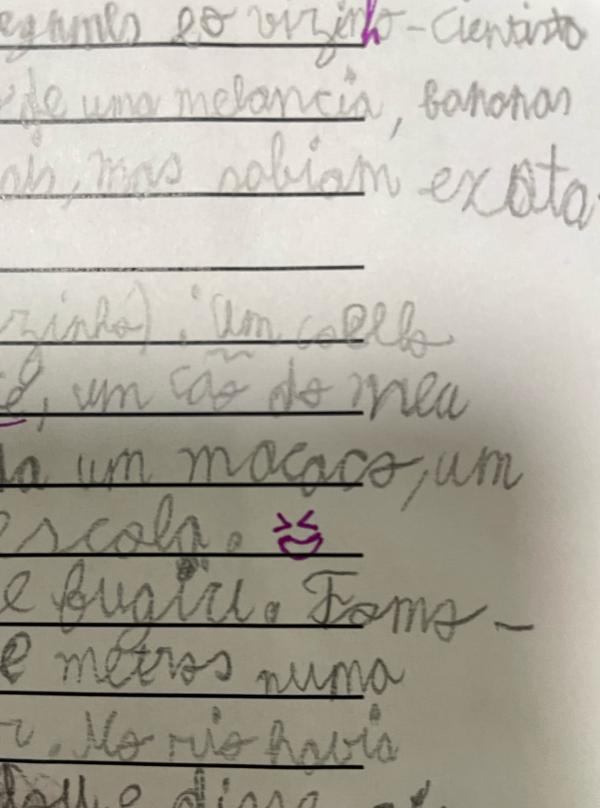 legumes e o vizinho-cientista
de uma melancia, bananas
mas sabiam exata
zinho). Um coelho
um cão do meu
um macaco, um
escola.
e fugiu. Fomo-
e metros numa
No rio havia
e disse